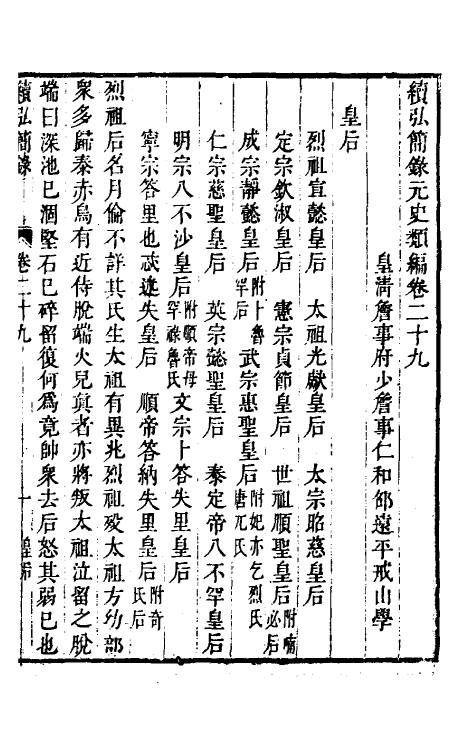 續弘簡錄元史類編卷二十九
皇清詹事府少詹事仁和邵遠平戒山學
皇后
烈祖宣懿皇后　太祖光獻皇后　太宗昭慈皇后
定宗欽淑皇后　憲宗貞節皇后　世祖順聖皇后附喃必后
成宗靜懿皇后附卜魯罕后　武宗惠聖皇后附妃亦乞烈氏唐兀氏
仁宗慈聖皇后　英宗懿聖皇后　泰定帝八不罕皇后
明宗八不沙皇后附順帝母罕祿魯氏　文宗卜答失里皇后
寧宗答里也忒迷失皇后　順帝答納失里皇后附奇氏后
烈祖后名月倫不詳其氏生太祖有異兆烈祖歿太祖方幼部
衆多歸泰赤烏有近侍脫端火兒真者亦將叛太祖泣留之脫
端曰深池已涸堅石已碎留復何爲竟帥衆去后怒其弱已也
續弘簡錄　卷二十九　一　皇后